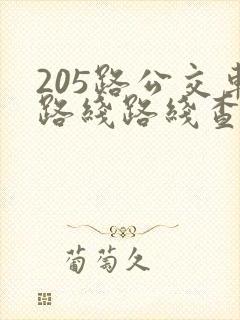 205路公交车
路线路线查
葡萄久